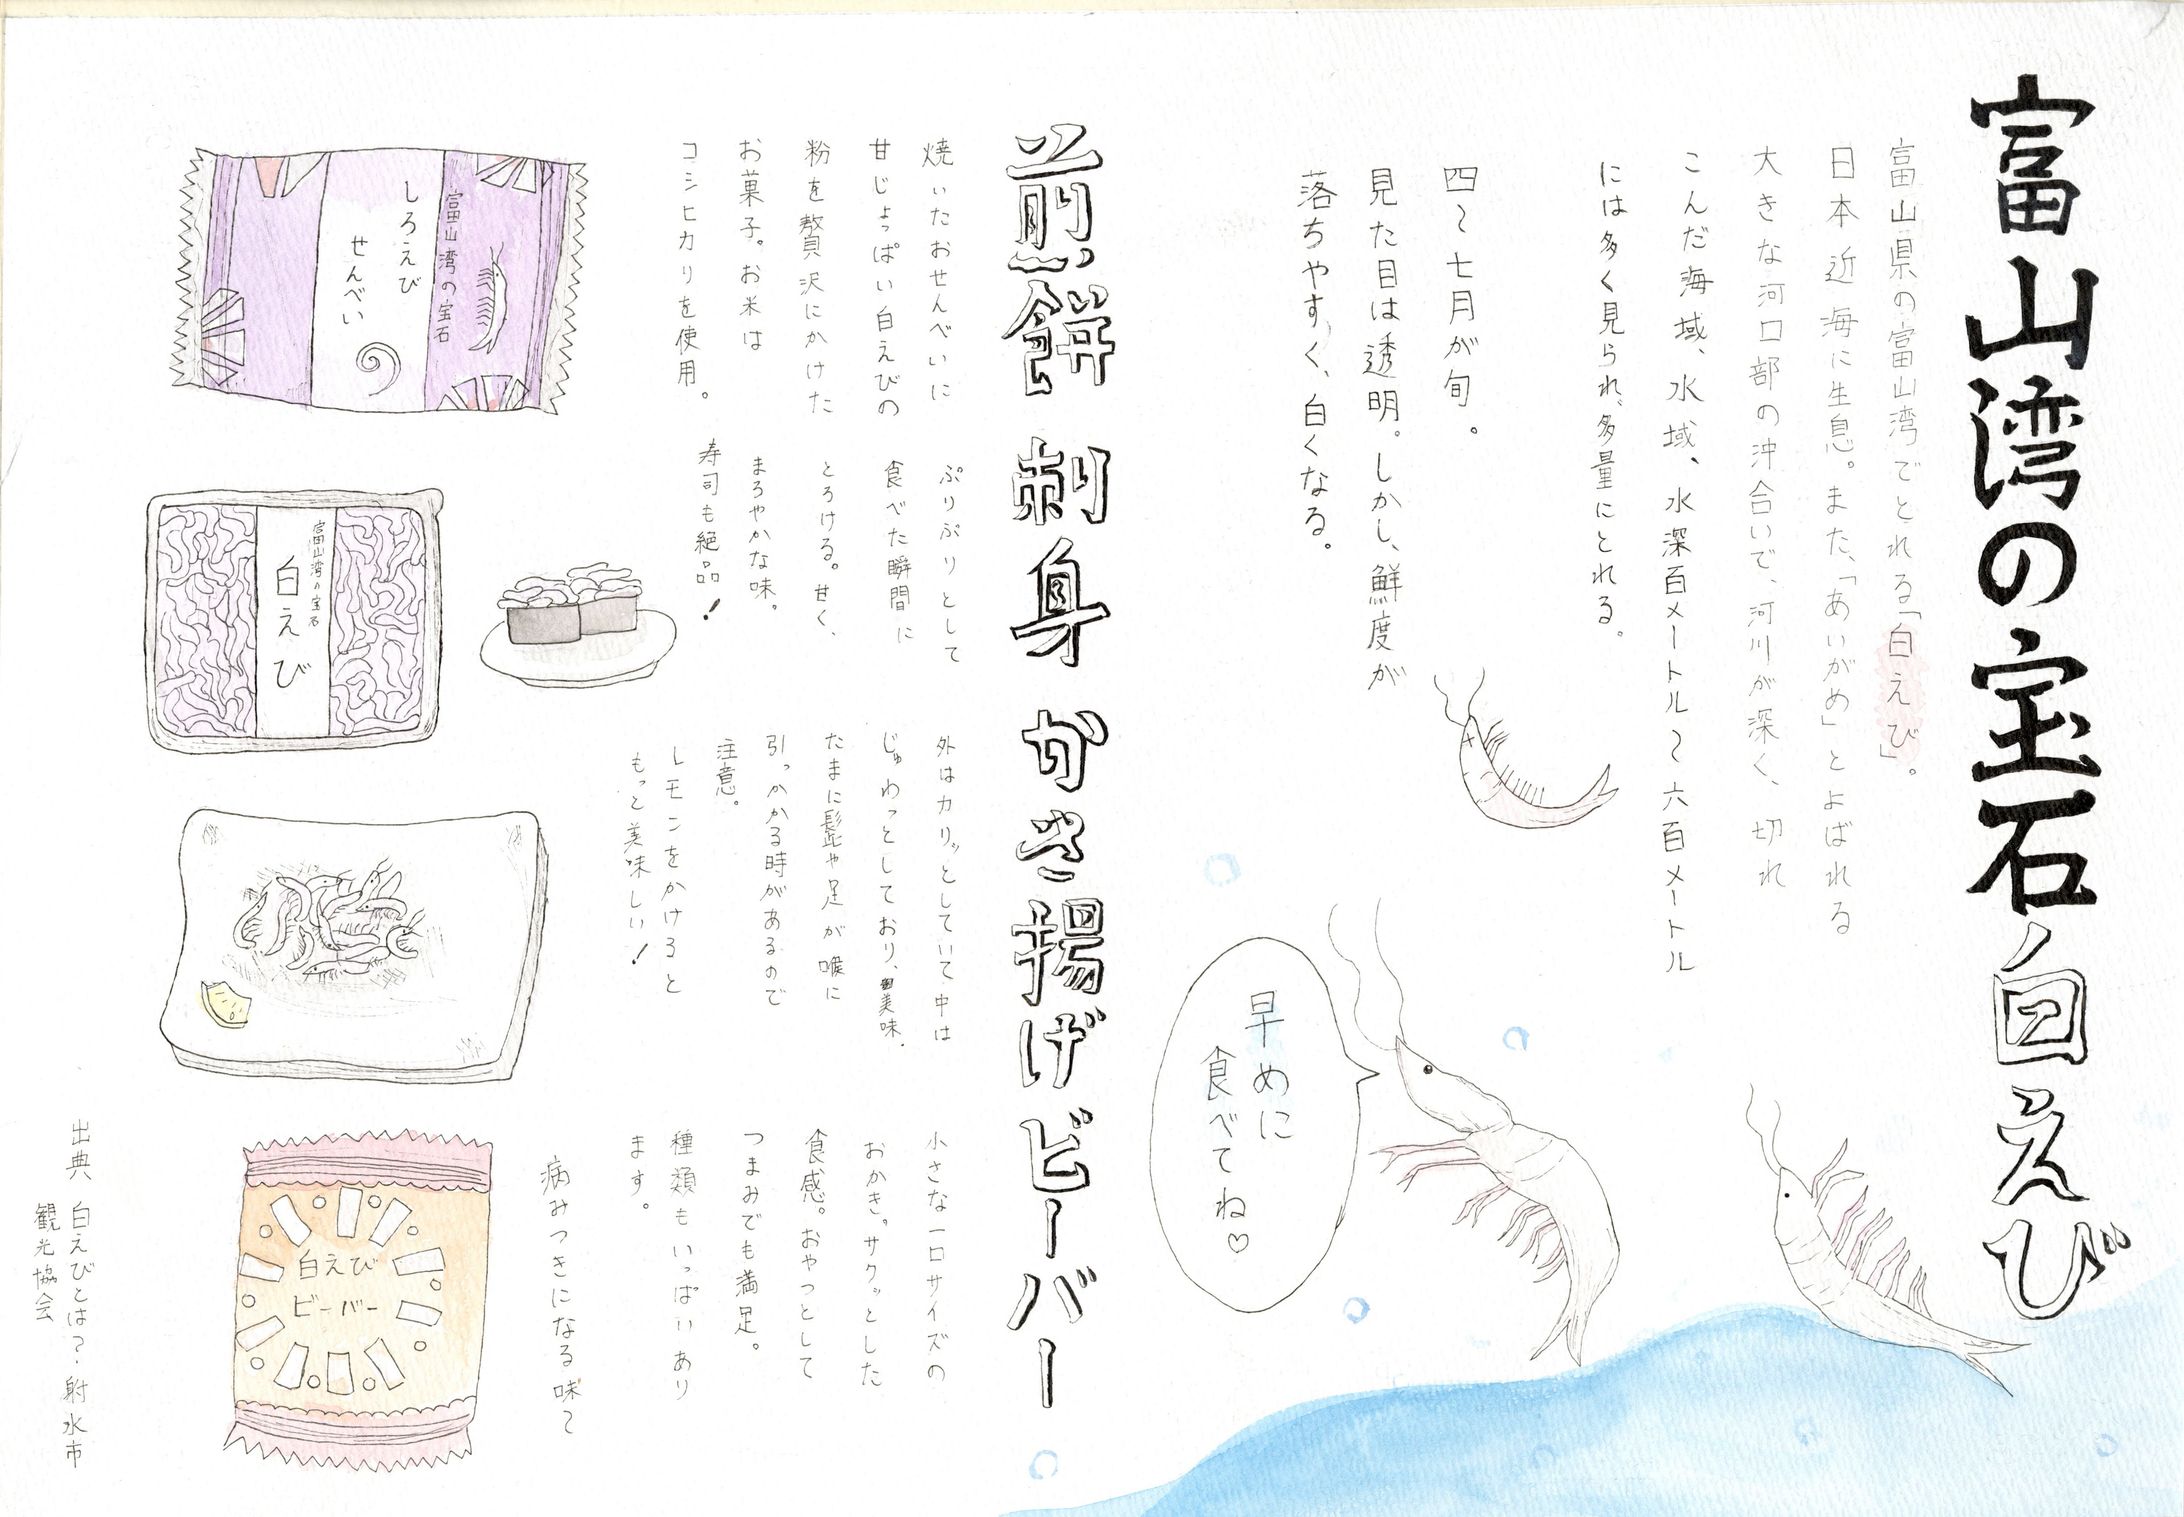 富山湾の宝石白えび
富山県の富山湾でとれる「白えび」。
日本近海に生息。また、「あいがめ」とよばれる
大きな河口部の沖合いで、河川が深く、切れ
こんだ海域、水域、水深百メートル〜六百メートル
には多く見られ、多量にとれる。
四〜七月が旬。
見た目は透明。しかし、鮮度が
落ちやすく、白くなる。
早めに
食べてね♡
煎餅
焼いたおせんべいに
甘じょっぱい白えびの
粉を贅沢にかけた
お菓子。お米は
コシヒカリを使用。
富山湾の宝石
しろえび
せんべい
刺身
ぷりぷりとして
食べた瞬間に
とろける。甘く、
まろやかな味。
寿司も絶品!
富山湾の宝石
白えび
かき揚げ
外はカリッとしていて、中は
じゅわっとしており、美味。
たまに髭や足が喉に
引っかかる時があるので
注意。
レモンをかけると
もっと美味しい!
ビーバー
小さな一口サイズの
おかき。サクッとした
食感。おやつとして
つまみでも満足。
種類もいっぱいあり
ます。
病みつきになる味〜
白えび
ビーバー
出典 白えびとは?・射水市
観光協会